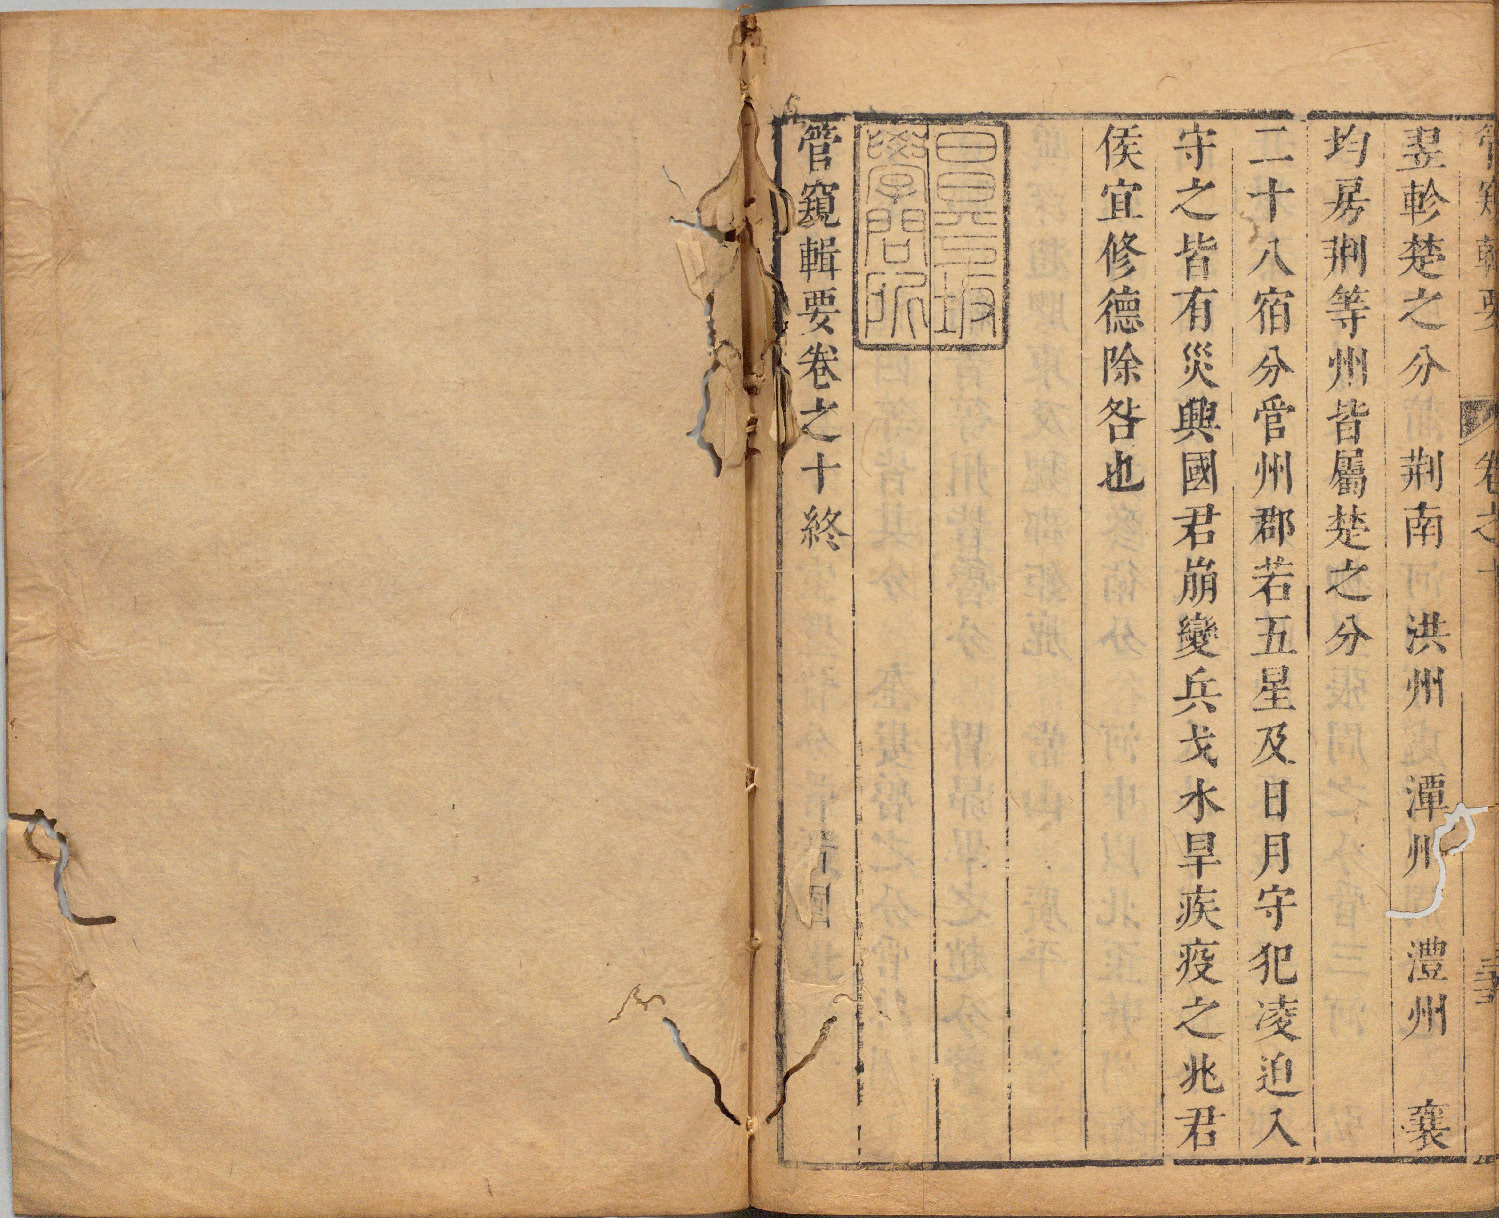 管窺輯要 卷之十
翌軫楚之分 荆南 洪州 潭州 澧州 襄
均房荆等州皆屬楚之分
二十八宿分管州郡若五星及日月守犯凌迫入
守之皆有災興國君崩變兵戈水旱疾疫之兆君
侯宜修德除咎也
管窺輯要卷之十終